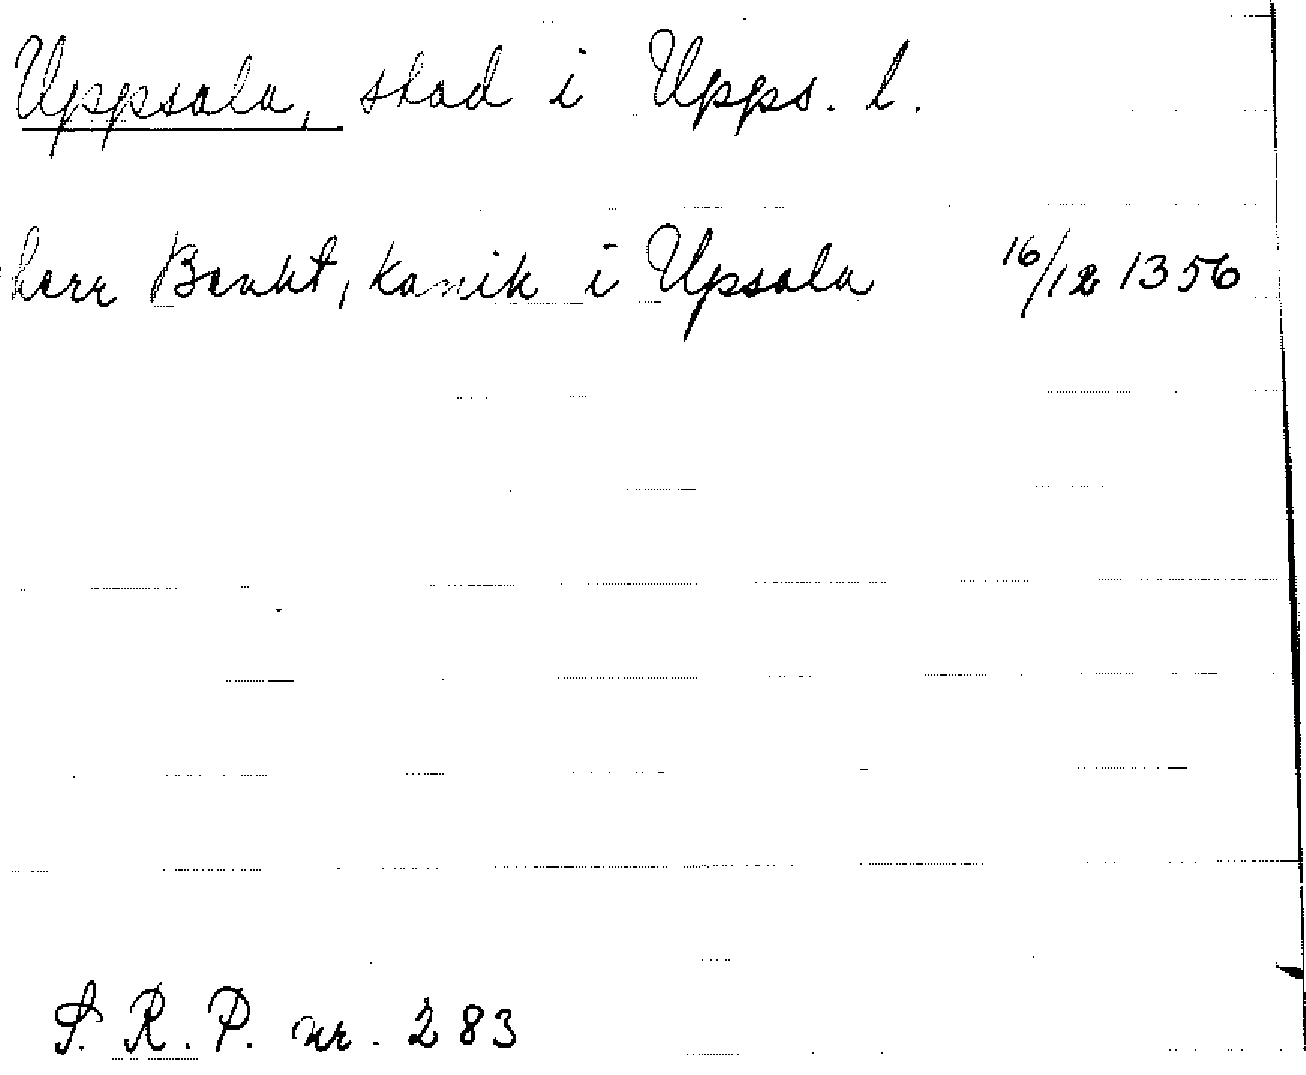 Uppsala, stad i Upps. l.
herr Benkt, kanik i Upsala 16/12 1356
S. R. P. nr. 283